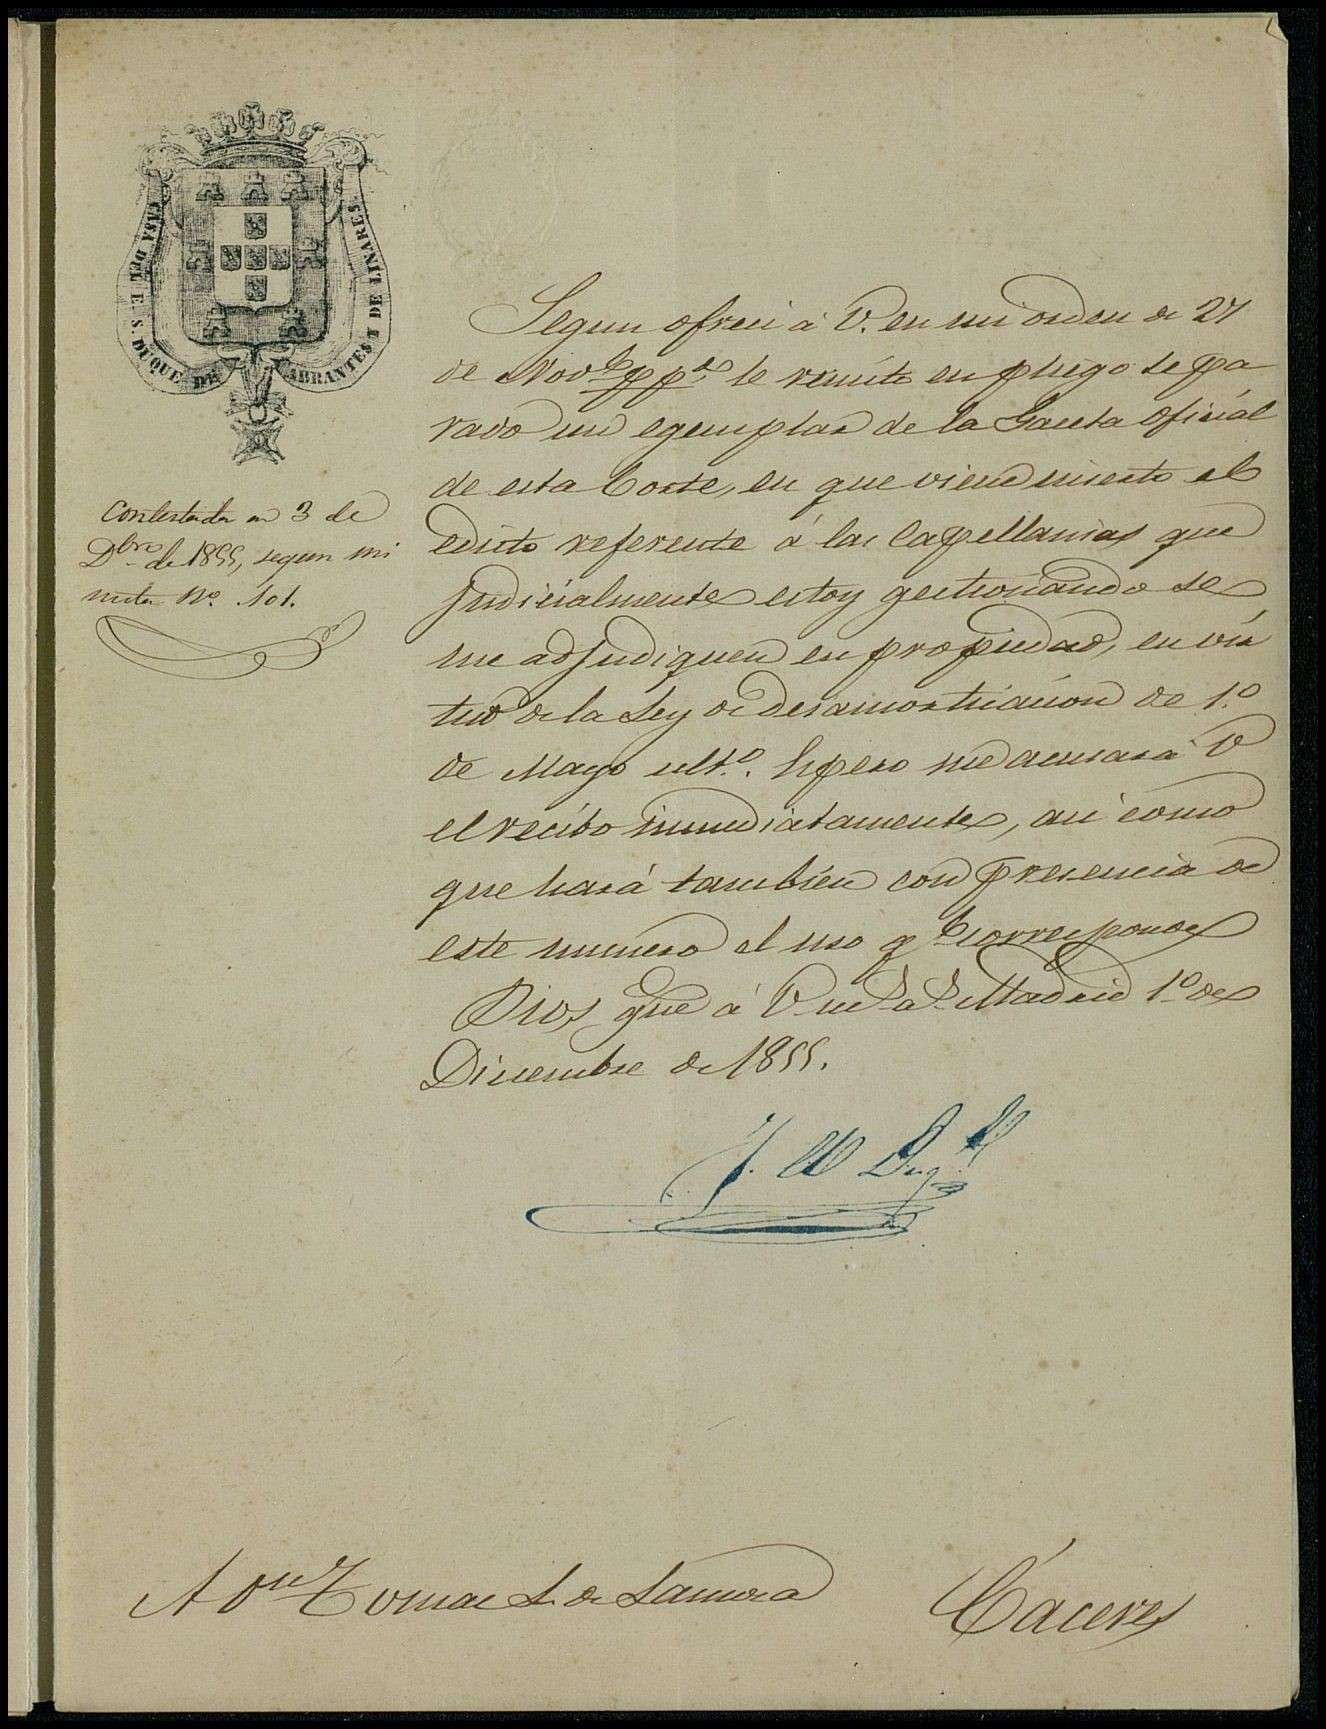 CASA DEL E. S. DUQUE DE ABRANTES Y DE LINARES
Contestada en 3 de
Dbre de 1855, segun mi
nuta No. 101.
Segun ofreci á V. en mi orden de 27
de Novbe ppdo le remito en pliego sepa
rado un egemplar de la Gaceta oficial
de esta Corte, en que viene inserto el
edicto referente á las Capellanias que
judicialmente estoy gestionando se
me adjudiquen en propiedad, en vir
tud de la Ley de desamortizacion de 1.º
de Mayo ult.º. Espero me acusará V
el recibo inmediatamente, asi como
que hará tambien con presencia de
este numero el uso q e corresponde
Dios gue á V ms as Madrid 1.º de
Diciembre de 1855.
J. El Duq.
A Dn Tomas S. de Lamora
Cáceres